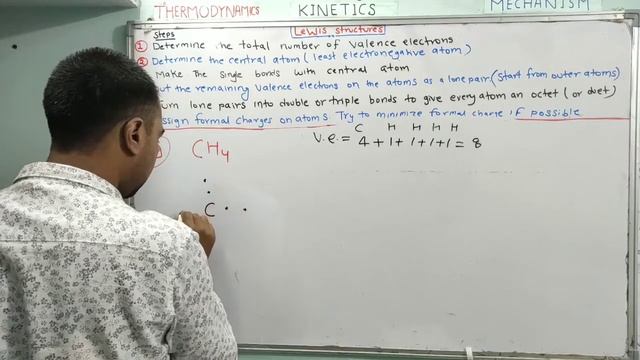 THERMODYNAMICS KINETICS MECHANISM
Lewis structures
Steps
① Determine the total number of valence electrons
② Determine the central atom (least electronegative atom)
Make the single bonds with central atom
the remaining valence electrons on the atoms as a lone pair (start from outer atoms)
lone pairs into double or triple bonds to give every atom an octet (or duet)
formal charges on atoms Try to minimize formal charge if possible
C H H H H
V.e. = 4 + 1 + 1 + 1 + 1 = 8
CH₄
C